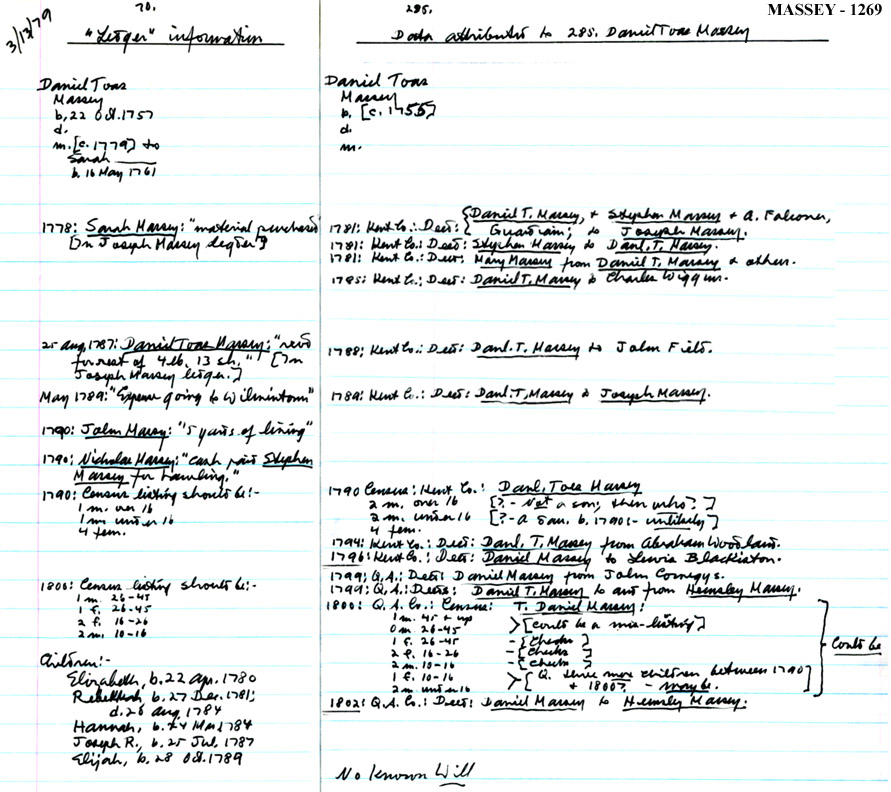 MASSEY - 1269
3/13/79
70.
"Ledger" information
Daniel Toas
Massey
b. 22 Oct. 1757
d.
m. [c. 1779] to
Sarah ______
b. 16 May 1761
1778: Sarah Massey: "material purchased"
[In Joseph Massey ledger]
25 Aug 1787: Daniel Toas Massey: "recd
for rest of 4 lb. 13 sh." [In
Joseph Massey ledger.]
May 1789: "Expense going to Wilmintown"
1790: John Massy: "5 yards of lining"
1790: Nicholas Massey: "cash paid Stephen
Massey for hauling."
1790: Census listing should be:-
1 m. over 16
1 m. under 16
4 fem.
1800: Census listing should be:-
1 m. 26-45
1 f. 26-45
2 f. 16-26
2 m. 10-16
Children:-
Elizabeth, b. 22 Apr. 1780
Rebekkah b. 27 Dec. 1781;
d. 26 Aug 1784
Hannah, b. 24 Mar 1784
Joseph R., b. 25 Jul. 1787
Elijah, b. 28 Oct. 1789
285.
Data attributed to 285. Daniel Toas Massey
Daniel Toas
Massey
b. [c. 1755]
d.
m.
1781: Kent Co.: Deed: { Daniel T. Massey, + Stephen Massey + A. Falconer,
Guardian; to Joseph Massey.
1781: Kent Co.: Deed: Stephen Massey to Danl. T. Massey.
1781: Kent Co.: Deed: Mary Massey from Daniel T. Massey + others.
1785: Kent Co.: Deed: Daniel T. Massey to Charles Wiggins.
1788: Kent Co.: Deed: Danl. T. Massey to John Field.
1789: Kent Co.: Deed: Danl. T. Massey to Joseph Massey.
1790 Census: Kent Co.: Danl. Toas Massey
2 m. over 16 [? - Not a son; then who?]
2 m. under 16 [? - a son. b. 1790:- unlikely]
4 fem.
1794: Kent Co.: Deed: Danl. T. Massey from Abraham Woodland.
1796: Kent Co.: Deed: Daniel Massey to Lewis Blackiston.
1799: Q.A.: Deed: Daniel Massey from John Comegys.
1799: Q.A.: Deeds: Daniel T. Massey to and from Hemsley Massey.
1800: Q.A. Co.: Census: T. Daniel Massey:
1 m. 45 + up
0 m. 26-45 > [could be a mis-listing]
1 f. 26-45 - [checks]
2 f. 16-26 - [checks]
2 m. 10-16 - [checks]
1 f. 10-16
2 m. under 16 > [Q. three more children between 1790
+ 1800? - maybe.
Could be
1802: Q.A. Co.: Deed: Daniel Massey to Hemsley Massey.
No known Will